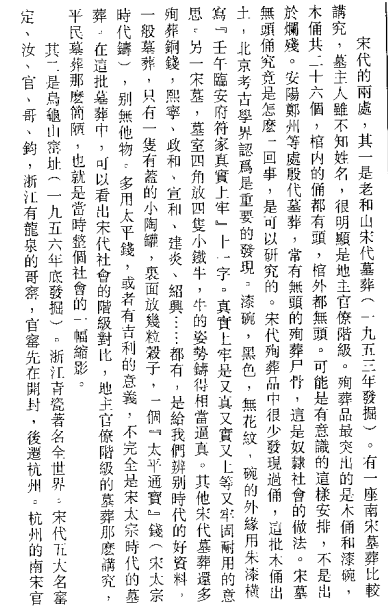 宋代的兩處，其一是老和山宋代墓葬（一九五三年發掘）。有一座南宋墓比較
講究，墓主人雖不知姓名，很明顯是地主官僚階級。殉葬品最突出的是木俑和漆碗，
木俑共二十六個，棺內的俑都有頭，棺外都無頭。可能是有意識的這樣安排，不是出
於爛殘。安陽鄭州等處殷代墓葬，常有無頭的殉葬尸骨，這是奴隸社會的做法。宋墓
無頭俑究竟是怎麼一回事，是可以研究的。宋代殉葬品中很少發現過俑，這批木俑出
土，北京考古學界認爲是重要的發現。漆碗，黑色，無花紋，碗的外緣用朱漆橫
寫『壬午臨安府符家真實上牢』十一字。真實上牢是又真又實又上等又牢固耐用的意
思。另一宋墓，墓室四角放四隻小鐵牛，牛的姿勢鑄得相當逼真。其他宋代墓葬還多
殉葬銅錢，熙寧、政和、宣和、建炎、紹興……都有，是給我們辨別時代的好資料，
一般墓葬，只有一隻有蓋的小陶罐，裏面放幾粒穀子，一個『太平通寶』錢（宋太宗
時代鑄），别無他物。多用太平錢，或者有吉利的意義，不完全是宋太宗時代的墓
葬。在這批墓葬中，可以看出宋代社會的階級對比，地主官僚階級的墓葬那麼講究，
平民墓葬那麼簡陋，也就是當時整個社會的一幅縮影。
其二是烏龜山窰址（一九五六年底發掘）。浙江青瓷著名全世界。宋代五大名窰
定、汝、官、哥、鈞，浙江有龍泉的哥窰，官窰先在開封，後遷杭州。杭州的南宋官